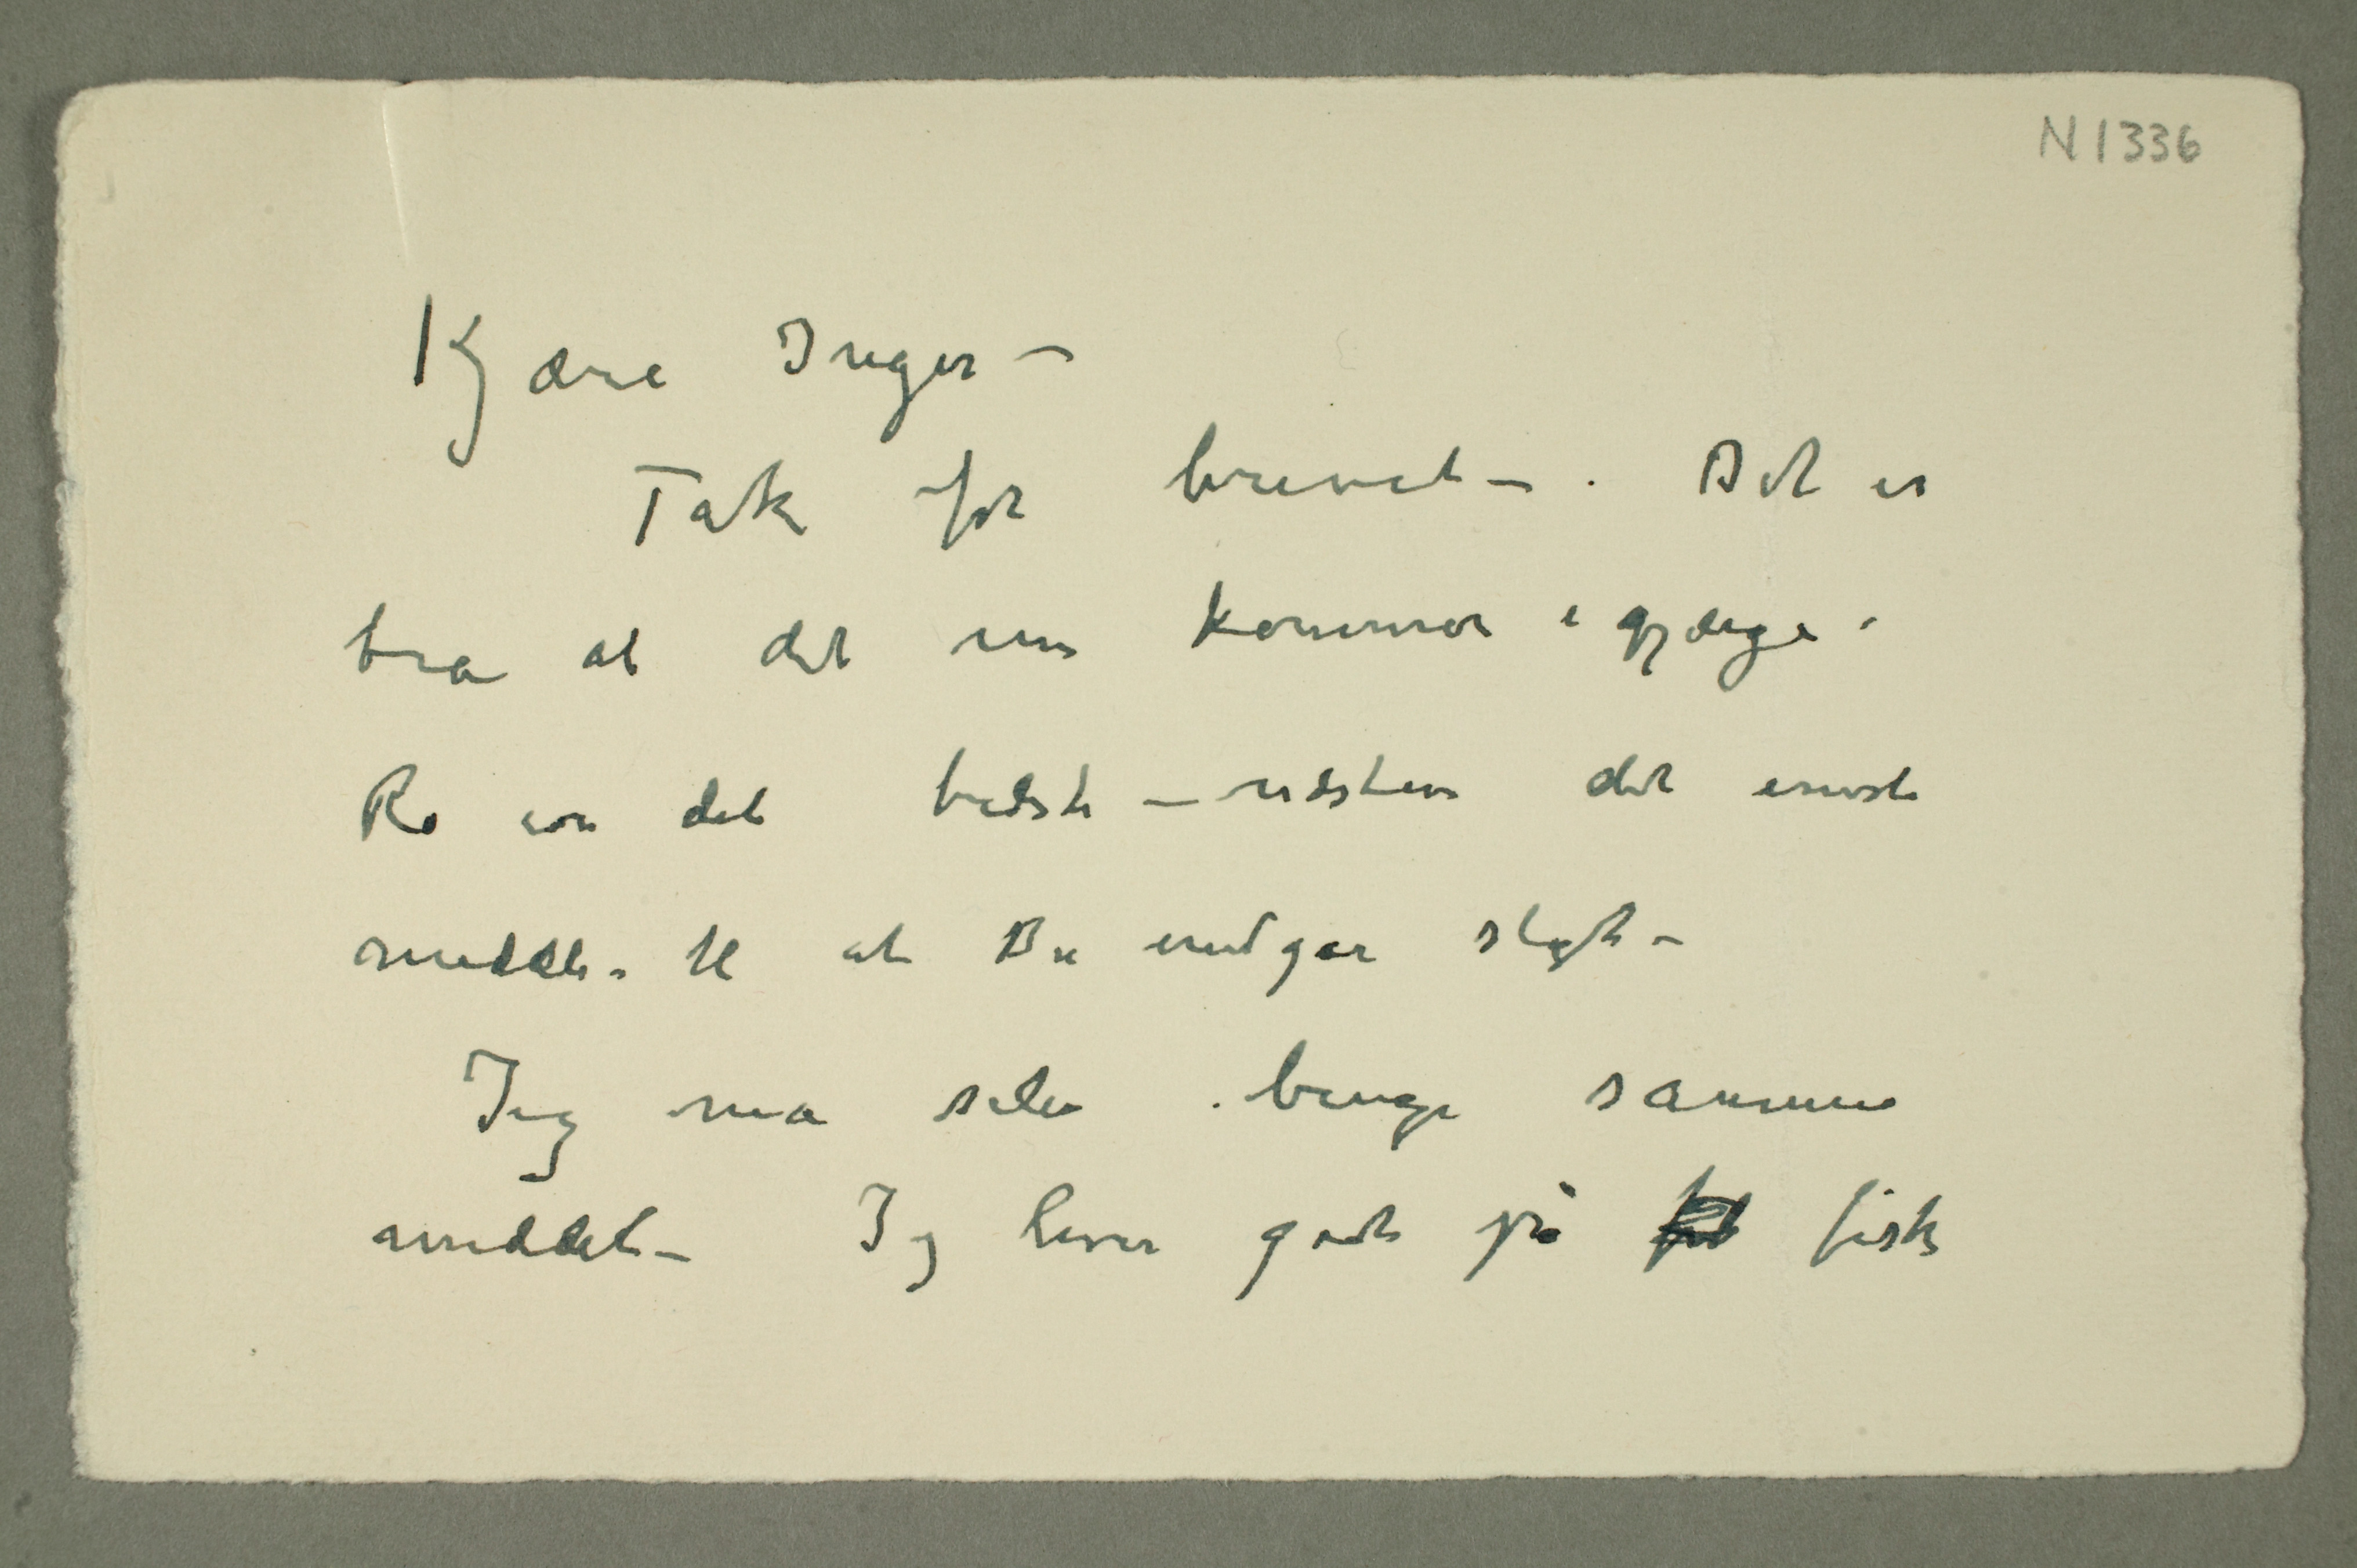 N 1336
Kjære Inger –
Tak for brevet – . Det er
bra at det nu kommer i gjænge.
Ro er det bedste – næsten det eneste
middel. til at Du undgår sligt –
Jeg må selv bruge samme
middel – Jeg lever godt på fisk